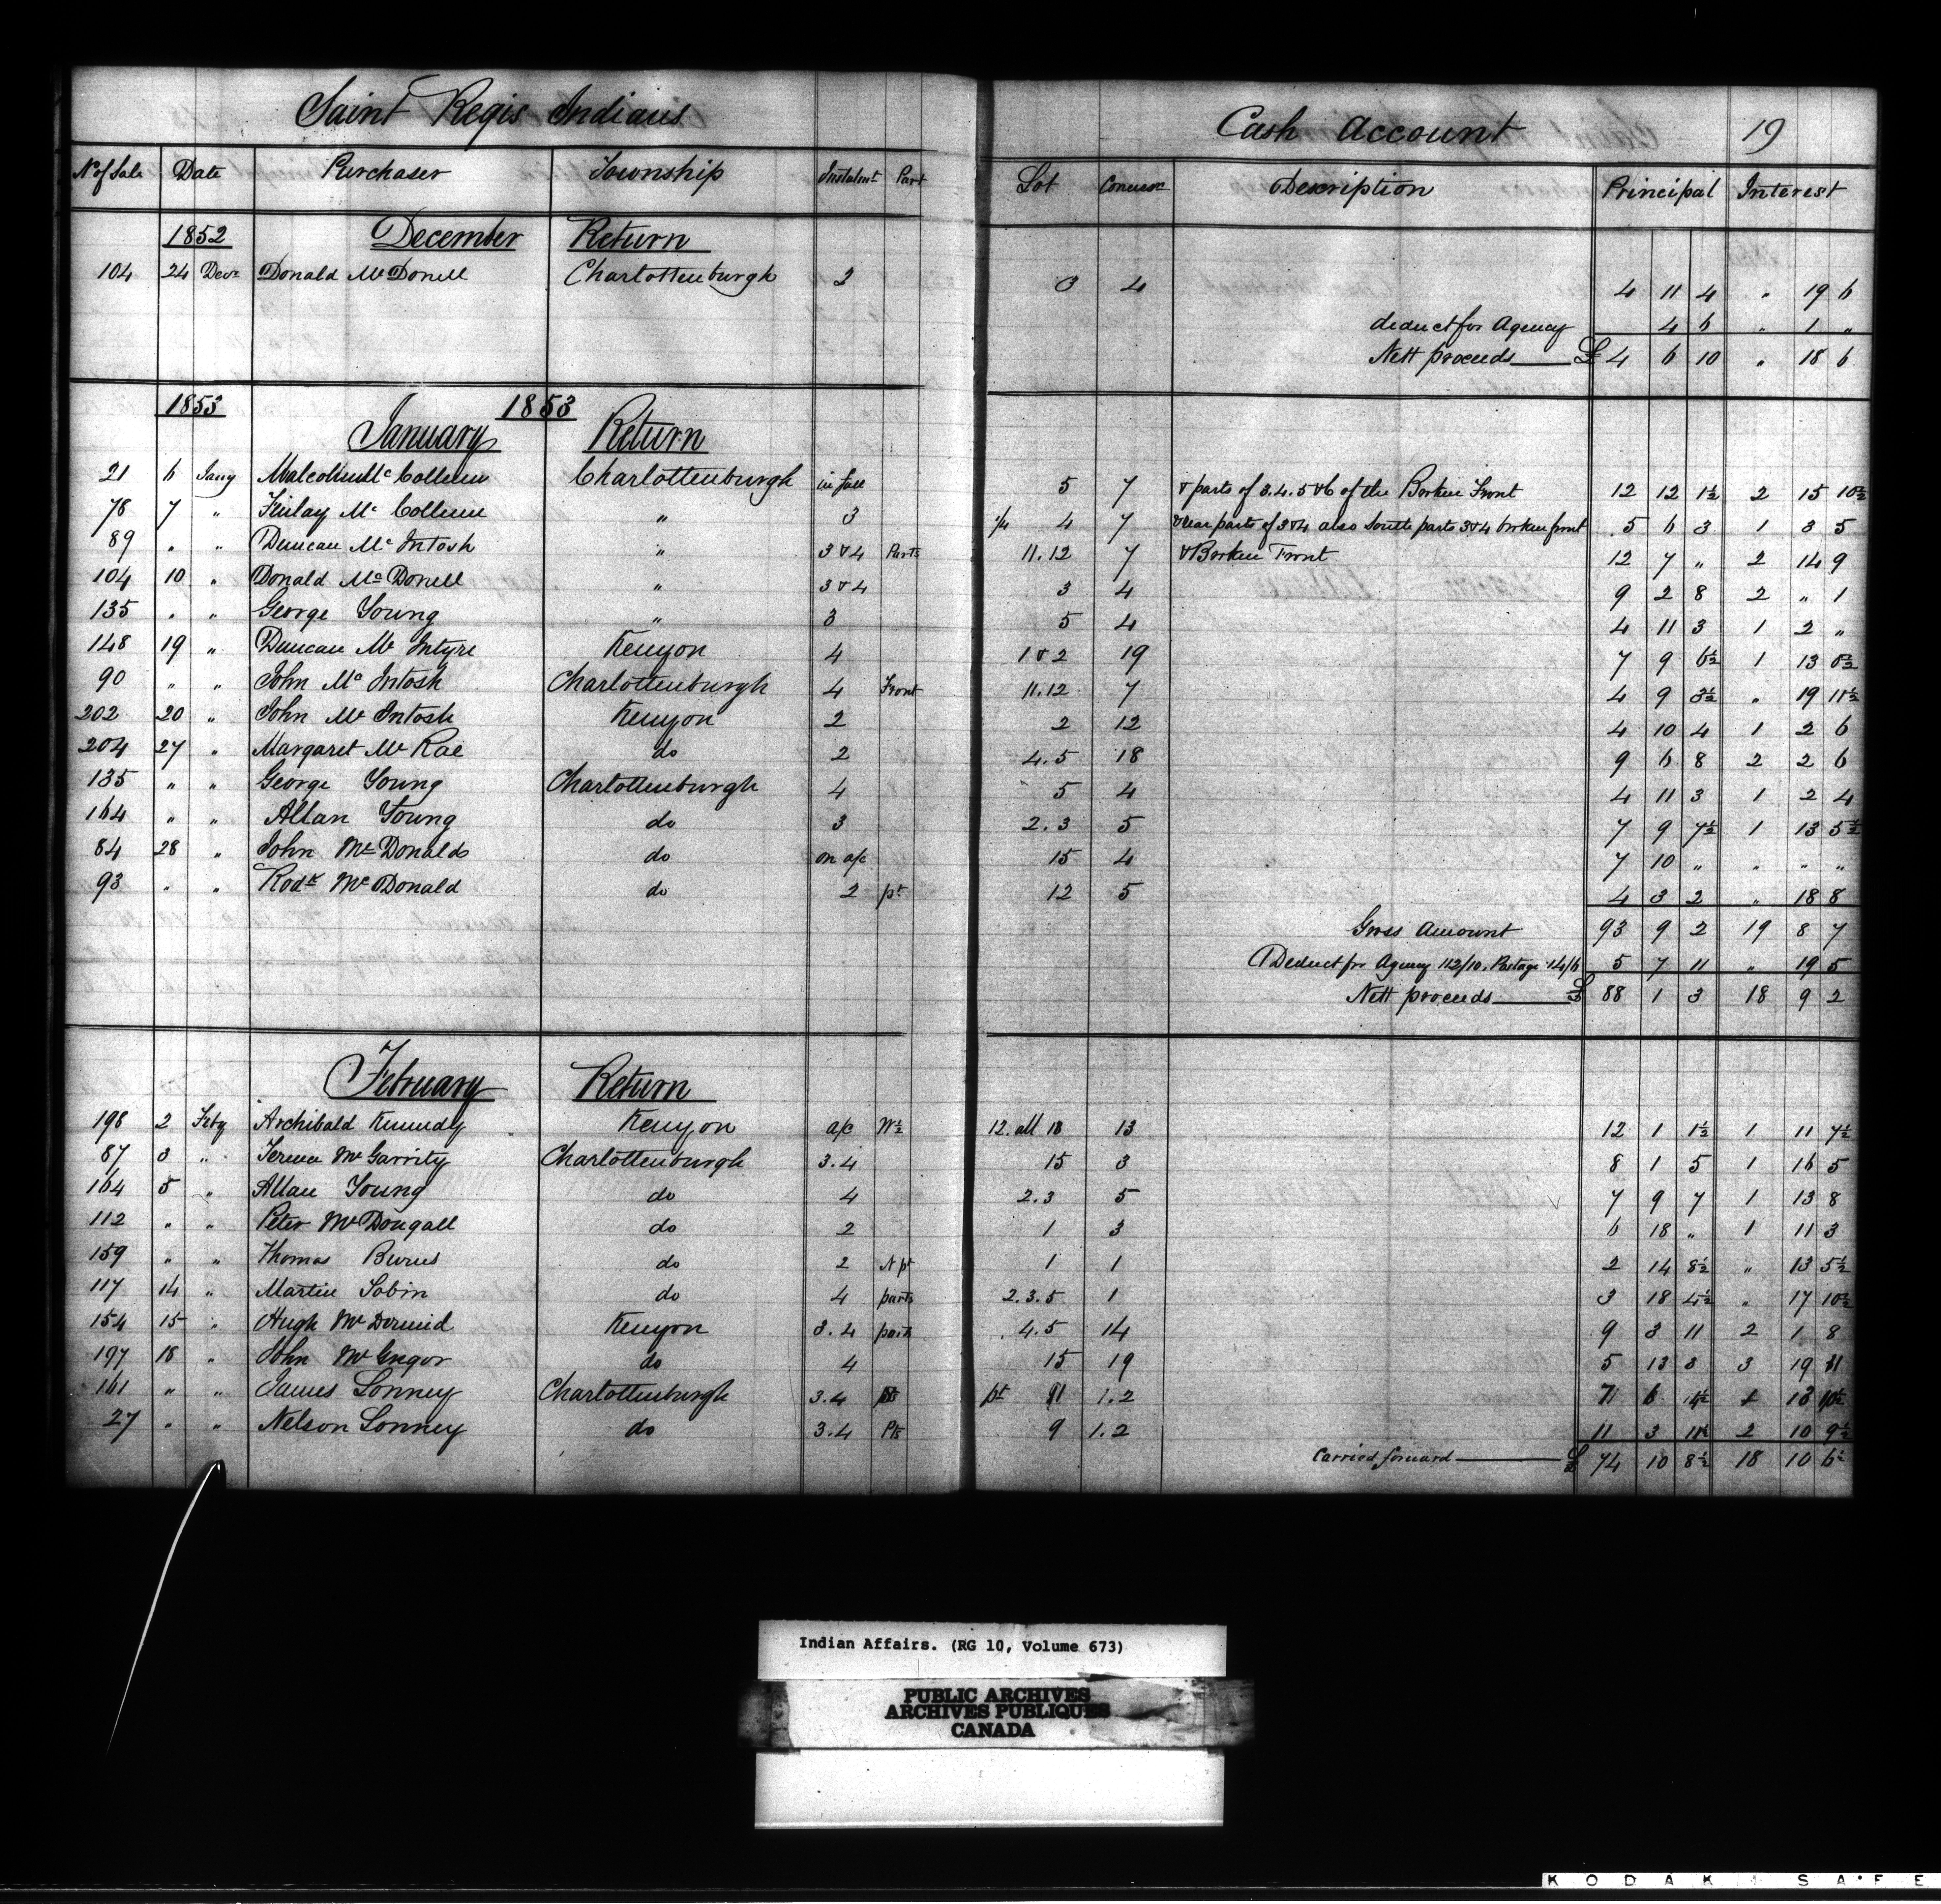 Saint Regis Indians Cash Account 19
No of Sale Date Purchaser Township Instalmt Part Lot Concessn Description Principal Interest
1852 December Return
104 24 Decr Donald McDonell Charlottenburgh 2 3 4 4 11 4 " 19 6
deduct for Agency 4 6 " 1 "
Nett proceeds £ 4 6 10 " 18 6
1853 1853
January Return
21 6 Jany Malcolm McCollum Charlottenburgh in full 5 7 & parts of 3.4.5&6 of the Borken Front 12 12 1½ 2 15 10½
78 7 " Finlay McCollum " 3 ¼ 4 7 & rear parts of 3&4 also South parts 3&4 broken front 5 6 3 1 3 5
89 " " Duncan McIntosh " 3 & 4 Parts 11.12 7 & Borken Front 12 7 " 2 14 9
104 10 " Donald McDonell " 3 & 4 3 4 9 2 8 2 " 1
135 " " George Young " 3 5 4 4 11 3 1 2 "
148 19 " Duncan McIntyre Kenyon 4 1 & 2 19 7 9 6½ 1 13 8½
90 " " John McIntosh Charlottenburgh 4 Front 11.12 7 4 9 3½ " 19 11½
202 20 " John McIntosh Kenyon 2 2 12 4 10 4 1 2 6
204 27 " Margaret McRae do 2 4.5 18 9 6 8 2 2 6
135 " " George Young Charlottenburgh 4 5 4 4 11 3 1 2 4
164 " " Allan Young do 3 2.3 5 7 9 7½ 1 13 5½
84 28 " John McDonald do on a/c 15 4 7 10 " " " "
93 " " Rodk McDonald do 2 pt 12 5 4 3 2 " 18 8
Gross Amount 93 9 2 19 8 7
Deduct for Agency 112/10. Postage 14/6 5 7 11 " 19 5
Nett proceeds £ 88 1 3 18 9 2
February Return
198 2 Feby Archibald Kennedy Kenyon a/c W½ 12. all 13 13 12 1 1½ 1 11 7½
87 3 " McGarrity Charlottenburgh 3.4 15 3 8 1 5 1 16 5
164 5 " Allan Young do 4 2.3 5 7 9 7 1 13 8
112 " " Peter McDougall do 2 1 3 6 18 " 1 11 3
159 " " Thomas Burns do 2 N pt 1 1 2 14 8½ " 13 5½
117 14 " Martin Tobin do 4 parts 2.3.5 1 3 18 4½ " 17 10½
154 15 " Hugh McDermid Kenyon 3.4 parts 4.5 14 9 3 11 2 1 8
197 18 " John McGregor do 4 15 19 5 13 3 3 19 11
161 " " James Lonney Charlottenburgh 3.4 pt 11 1.2 7 6 1½ 1 13 10½
27 " " Nelson Lonney do 3.4 Pts 9 1.2 11 3 11½ 2 10 9½
Carried forward £ 74 10 8½ 18 10 6½
Indian Affairs. (RG 10, Volume 673)
PUBLIC ARCHIVES
ARCHIVES PUBLIQUES
CANADA
KODAK SAFE